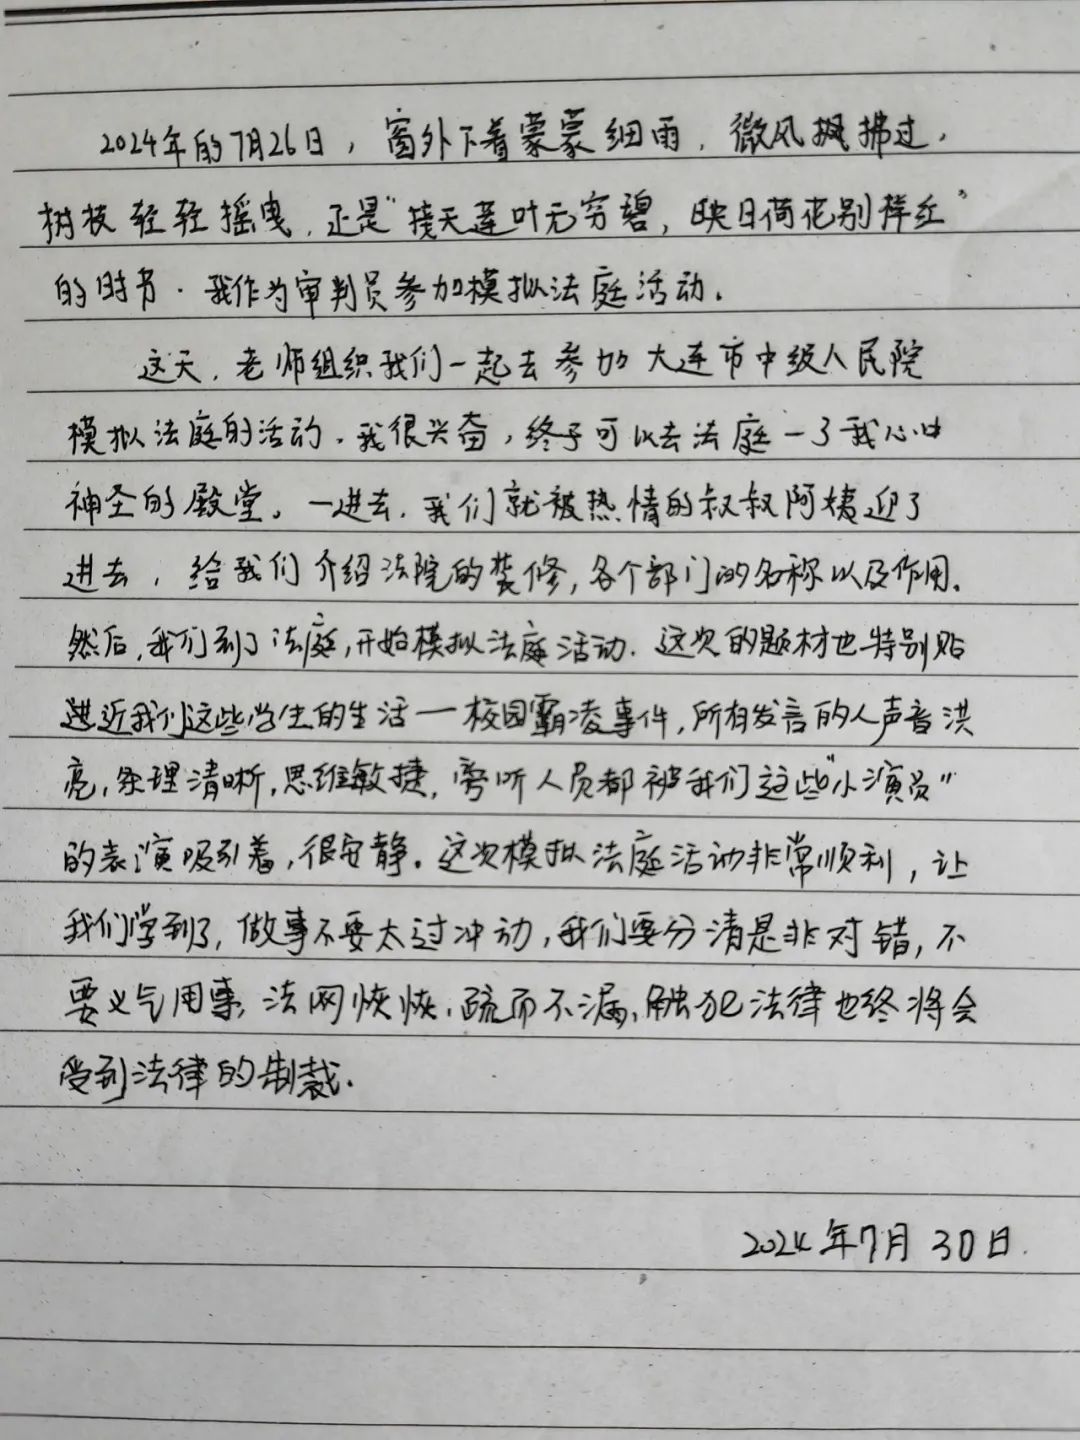 2024年的7月26日，窗外下着蒙蒙细雨，微风拂过，
树枝轻轻摇曳，正是“接天莲叶无穷碧，映日荷花别样红”
的时节。我作为审判员参加模拟法庭活动。
这天，老师组织我们一起去参加大连市中级人民院
模拟法庭的活动。我很兴奋，终于可以去法庭一了我心中
神圣的殿堂。一进去，我们就被热情的叔叔阿姨迎了
进去，给我们介绍法院的装修，各个部门的名称以及作用。
然后，我们到了法庭，开始模拟法庭活动。这次的题材也特别贴
近我们这些学生的生活一校园霸凌事件，所有发言的人声音洪
亮，条理清晰，思维敏捷，旁听人员都被我们这些“小演员”
的表演吸引着，很安静。这次模拟法庭活动非常顺利，让
我们学到了，做事不要太过冲动，我们要分清是非对错，不
要义气用事，法网恢恢，疏而不漏，触犯法律也终将会
受到法律的制裁。
2024年7月30日.